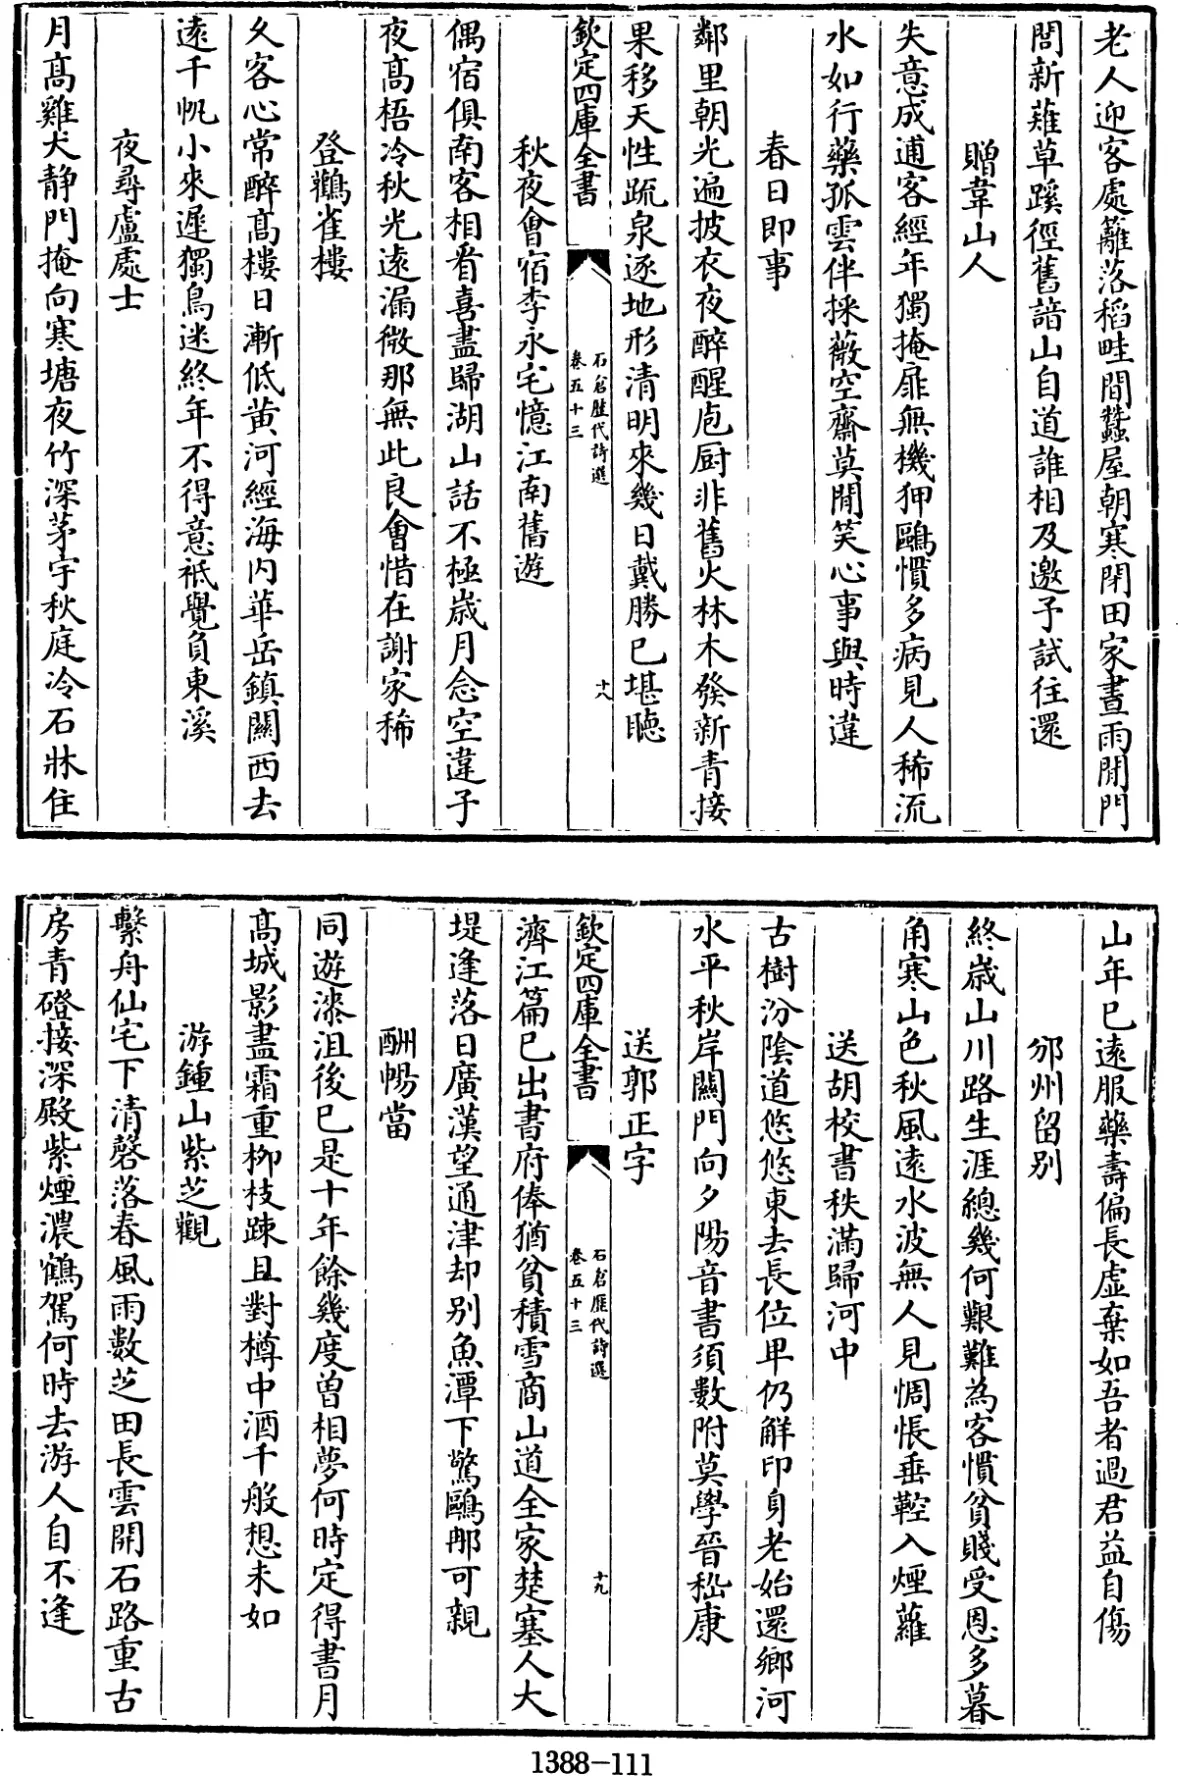 老人迎客處籬落稻畦間蠶屋朝寒閉田家晝雨閒門
間新薙草蹊徑舊諳山自道誰相及邀予試往還
贈韋山人
失意成逋客經年獨掩扉無機狎鷗慣多病見人稀流
水如行藥孤雲伴採薇空齋莫閒笑心事與時違
春日即事
鄰里朝光遍披衣夜醉醒庖厨非舊火林木發新青接
果移天性疏泉逐地形清明來幾日戴勝已堪聴
欽定四庫全書
石倉歷代詩選
卷五十三
十八
秋夜會宿李永宅憶江南舊遊
偶宿俱南客相看喜盡歸湖山話不極歲月念空違子
夜高梧冷秋光遠漏微那無此良會惜在謝家稀
登鸛雀樓
久客心常醉高樓日漸低黄河經海内華岳鎮關西去
遠千帆小來遲獨鳥迷終年不得意秪覺負東溪
夜尋盧處士
月高雞犬静門掩向寒塘夜竹深茅宇秋庭冷石牀住
山年已遠服藥壽偏長虛棄如吾者過君益自傷
邠州留别
終歲山川路生涯總幾何艱難為客慣貧賤受恩多暮
角寒山色秋風遠水波無人見惆悵垂鞚入煙蘿
送胡校書秩滿歸河中
古樹汾陰道悠悠東去長位卑仍解印身老始還鄉河
水平秋岸關門向夕陽音書須數附莫學晉嵇康
送郭正字
欽定四庫全書
石倉歷代詩選
卷五十三
十九
濟江篇已出書府俸猶貧積雪商山道全家楚塞人大
堤逢落日廣漢望通津却别魚潭下驚鷗那可親
酬暢當
同遊漆沮後已是十年餘幾度曽相夢何時定得書月
高城影盡霜重栁枝踈且對樽中酒千般想未如
游鍾山紫芝觀
繫舟仙宅下清磬落春風雨數芝田長雲開石路重古
房青磴接深殿紫煙濃鶴駕何時去游人自不逢
1388-111